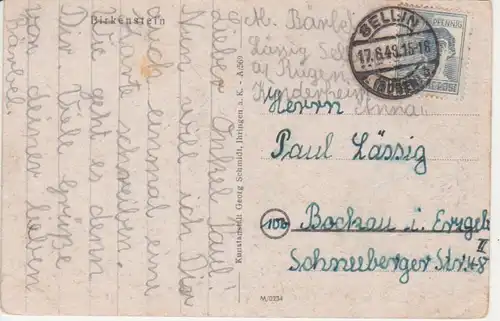 Birkenstein
lieber Onkel Paul!
Nun will ich Dir
auch einmal eine
Karte schreiben.
Wie geht es denn
Dir? Viele Grüße
von deiner lieben
Bärbel.
Kunstanstalt Georg Schmidt, Ihringen a. K. - A:569
M/0234
Bärbel
Lässig Sell
a/ Rügen
Kinderheim
Anna
SELLIN
17.6.49.15-16
(RÜGEN)
PFENNIG
POST
Herrn
Paul Lässig
10b
Bockau i. Erzgeb
II
Schneeberger Str. 48